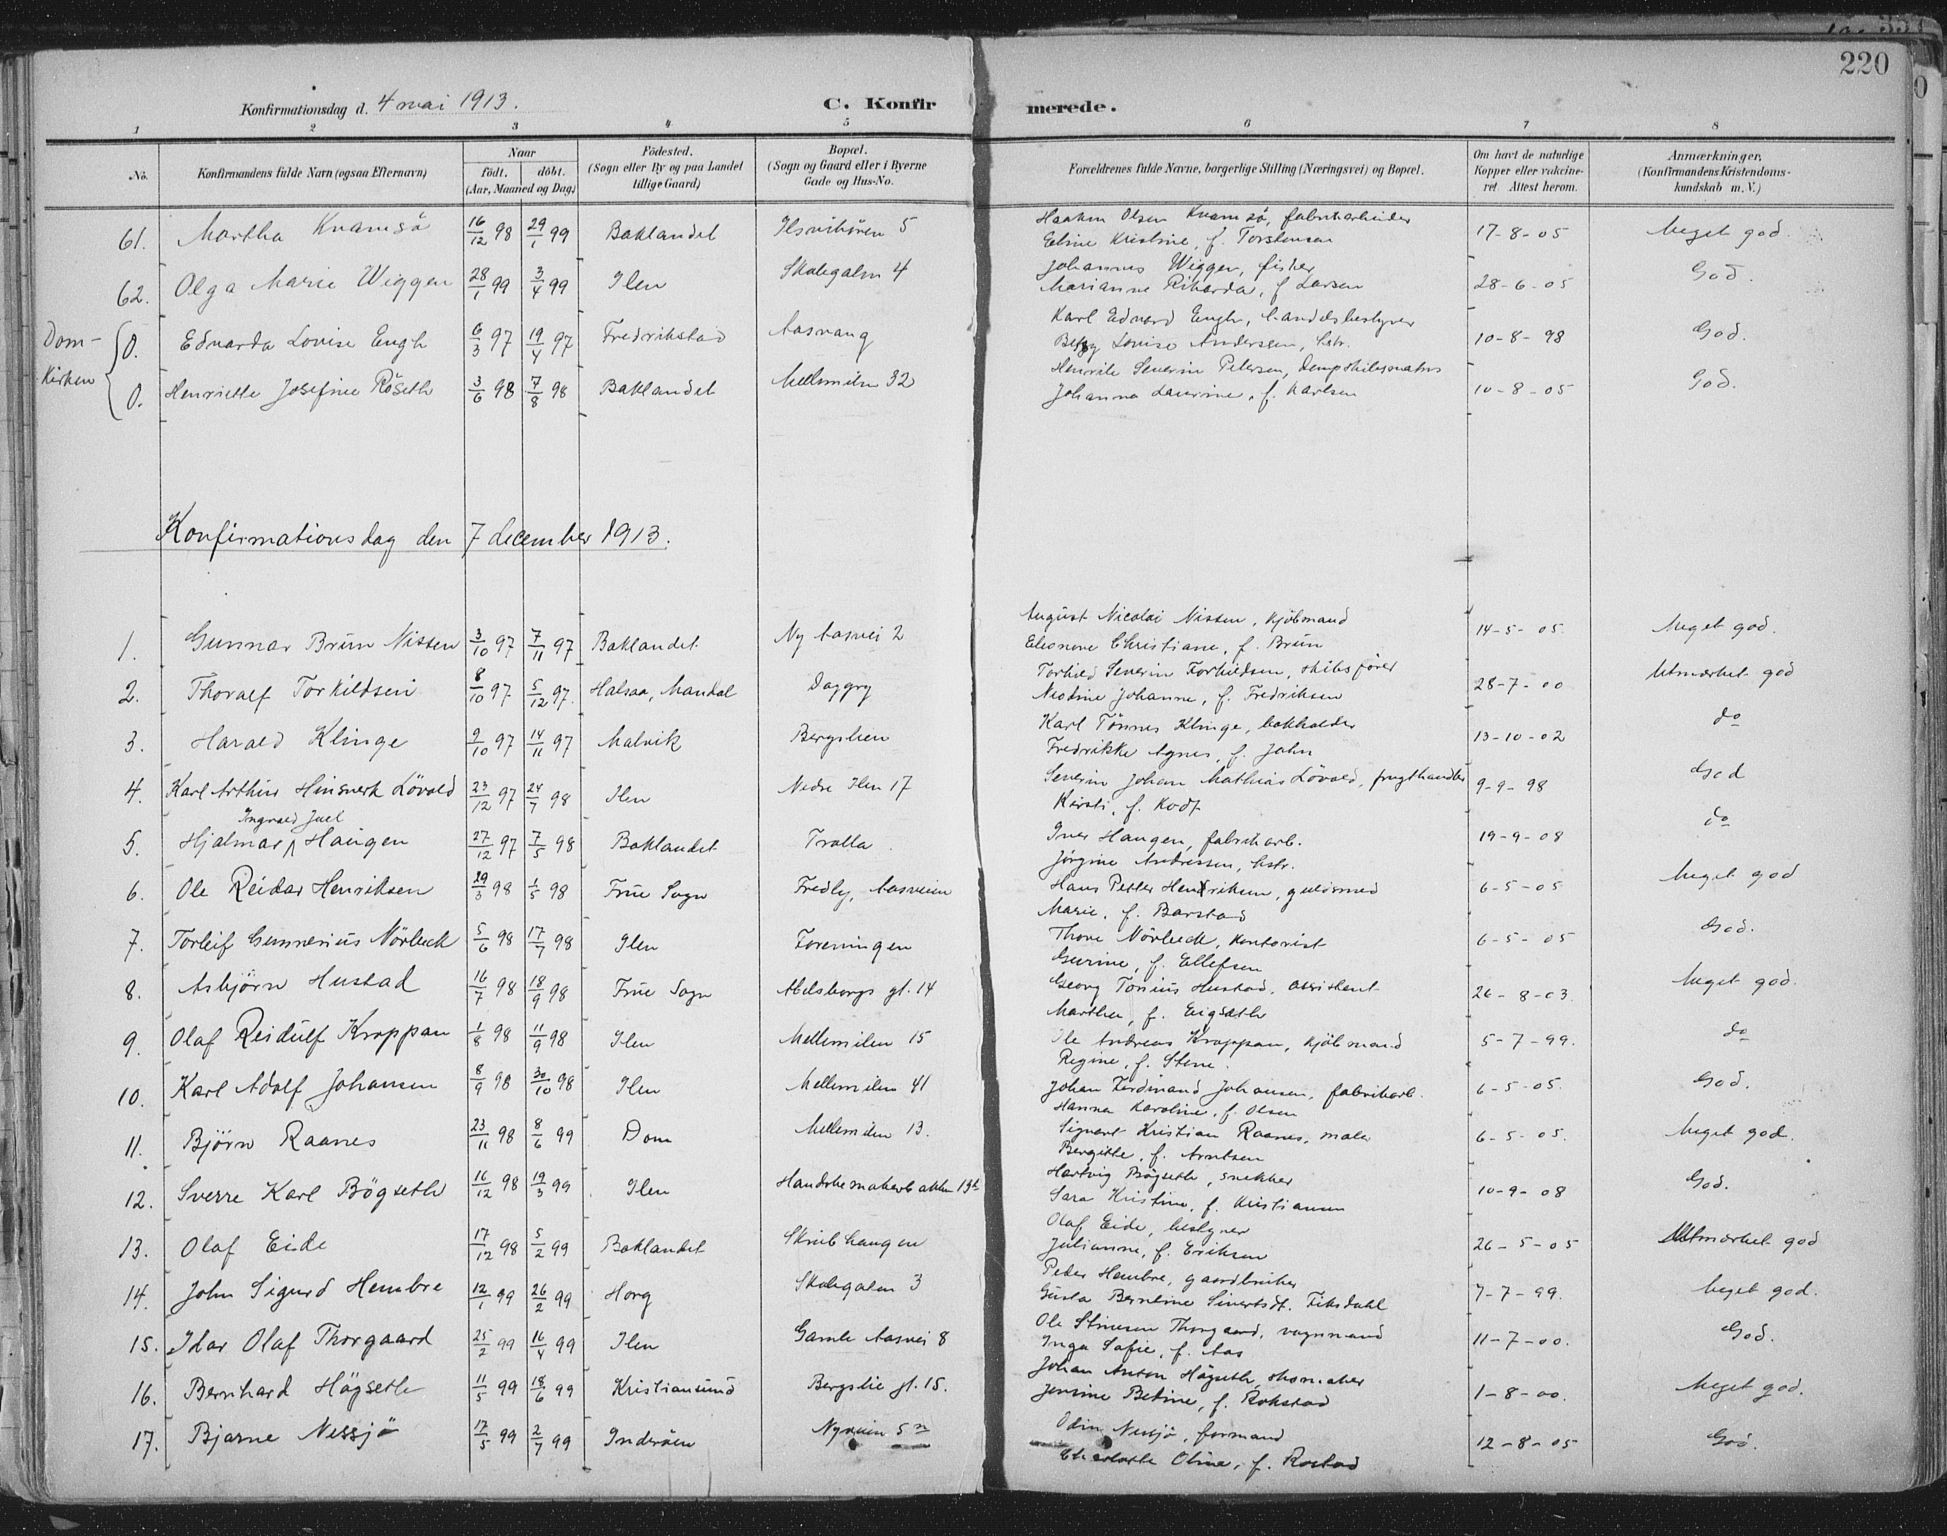 220
Konfirmationsdag d. 4 mai 1913. C. Konfirmerede.
1 2 3 4 5 6 7 8
No. Konfirmandens fulde Navn (ogsaa Efternavn) Naar født. døbt. (Aar, Maaned og Dag) Fødested. (Sogn eller By og paa Landet tillige Gaard) Bopæl. (Sogn og Gaard eller i Byerne Gade og Hus-No. Forældrenes fulde Navne, borgerlige Stilling (Næringsvei) og Bopæl. Om havt de naturlige Kopper eller vakcineret. Attest herom. Anmærkninger. (Konfirmandens Kristendomskundskab m. V.)
61. Martha Kvamsö 16/12 98 29/1 99 Baklandet Ilsvikören 5 Haakon Olsen Kvamsö, fabrikarbeider 17-8-05 Meget god.
Eline Kristine, f. Torstensen
62. Olga Marie Wiggen 28/1 99 3/4 99 Ilen Skolegaten 4 Johannes Wiggen, fisker 28-6-05 God.
Marianne Rikarda, f. Larsen
Domkirken
0. Edvarda Lovise Engh 6/3 97 19/4 97 Fredrikstad Aasvang Karl Edvard Engh, handelsbestyrer 10-8-98 God.
Lovise Andersen, hstr.
0. Henriette Josefine Röseth 3/6 98 7/8 98 Baklandet Mellemilen 32 Henrik Severin Petersen, 10-8-05 God.
Johanna Laurine, f. Karlsen
Konfirmationsdag den 7 december 1913.
1. Gunnar Brun Nissen 3/10 97 7/11 97 Baklandet Ny Aasvei 2 August Nicolai Nissen, kjöbmand 14-5-05. Meget god.
Eleonore Christiane, f. Brun
2. Thoralf Torkildsen 8/10 97 5/12 97. Halsaa, Mandal Daggry Torkild Severin Torkildsen, skibsförer 28-7-00 Utmærket god
Johanne, f. Fredriksen
3. Harald Klinge 9/10 97 14/11 97 Malvik Bergslien Karl Tönnes Klinge, bokholder 13-10-02 do
Fredrikke Agnes, f. Jahn
4. Karl Arthur Hinsverk Lövold 23/12 97 24/7 98 Ilen Nedre Ilen 17 Severin Johan Mathias Lövold, frugthandler 9-9-98 God
Kirsti, f.
Ingvald Juel
5. Hjalmar Haugen 27/12 97 7/5 98 Baklandet Trolla Iver Haugen, fabrikarb. 19-9-08 do
Jörgine Andressen, hstr.
6. Ole Reidar Henriksen 29/3 98 1/5 98 Frue Sogn Fredly, Aasveien Hans Petter Henriksen, guldsmed 6-5-05 Meget god
Marie, f. Barstad
7. Torleif Gunnerius Nörbeck 5/6 98 17/7 98 Ilen Foreningen Thore Nörbeck, kontorist 6-5-05 God.
Gurine, f. Ellefsen
8. Asbjörn Hustad 16/7 98 18/9 98 Frue Sogn Abelsborgs gt. 14 Georg Tonius Hustad, assistent 26-8-03. Meget god.
Marthea, f.
9. Olaf Reidulf Kroppan 1/8 98 11/9 98 Ilen Mellemilen 15 Ole Andreas Kroppan, kjöbmand 5-7-99. do
Regine, f. Stene.
10. Karl Adolf Johansen 8/9 98 30/10 98 Ilen Mellemilen 41 Johan Ferdinand Johansen, fabrikarb. 6-5-05. God.
Hanna Karoline, f. Olsen
11. Björn Raanes 23/11 98 8/6 99 Dom Mellemilen 13. Sigvart Kristian Raanes, maler 6-5-05. Meget god.
Bergitte, f. Arntsen
12. Sverre Karl Bögseth 16/12 98 19/3 99 Ilen Handskemakerbakken 13b Hartvig Bögseth, snekker 10-9-08 God.
Sara Kristine, f. Kristiansen
13. Olaf Eide 17/12 98 5/2 99 Baklandet Skrubhaugen Olaf Eide, bestyrer 26-5-05 Utmærket god
Julianne, f. Eriksen
14. John Sigurd Hembre 12/1 99 26/2 99 Horg Skolegaten 3 Peder Hembre, gaardbruker 7-7-99. Meget god.
Gusta Berntine Sivertsdt. Fiksdahl
15. Idar Olaf Thorgaard 25/2 99 16/4 99 Ilen Gamle Aasvei 8 Ole Thorgaard, vognmand 11-7-00. God.
Inga Sofie, f. Aas
16. Bernhard Högseth 11/5 99 18/6 99 Kristiansund Bergslie gt. 15. Johan Anton Högseth, skomaker 1-8-00. Meget god.
Jensine Betine, f. Rokstad
17. Bjarne Nessjö 17/5 99 2/7 99 Inderöen Nyveien 5 Odin Nessjö, formand 12-8-05 God.
Charlotte Oline, f. Rostad